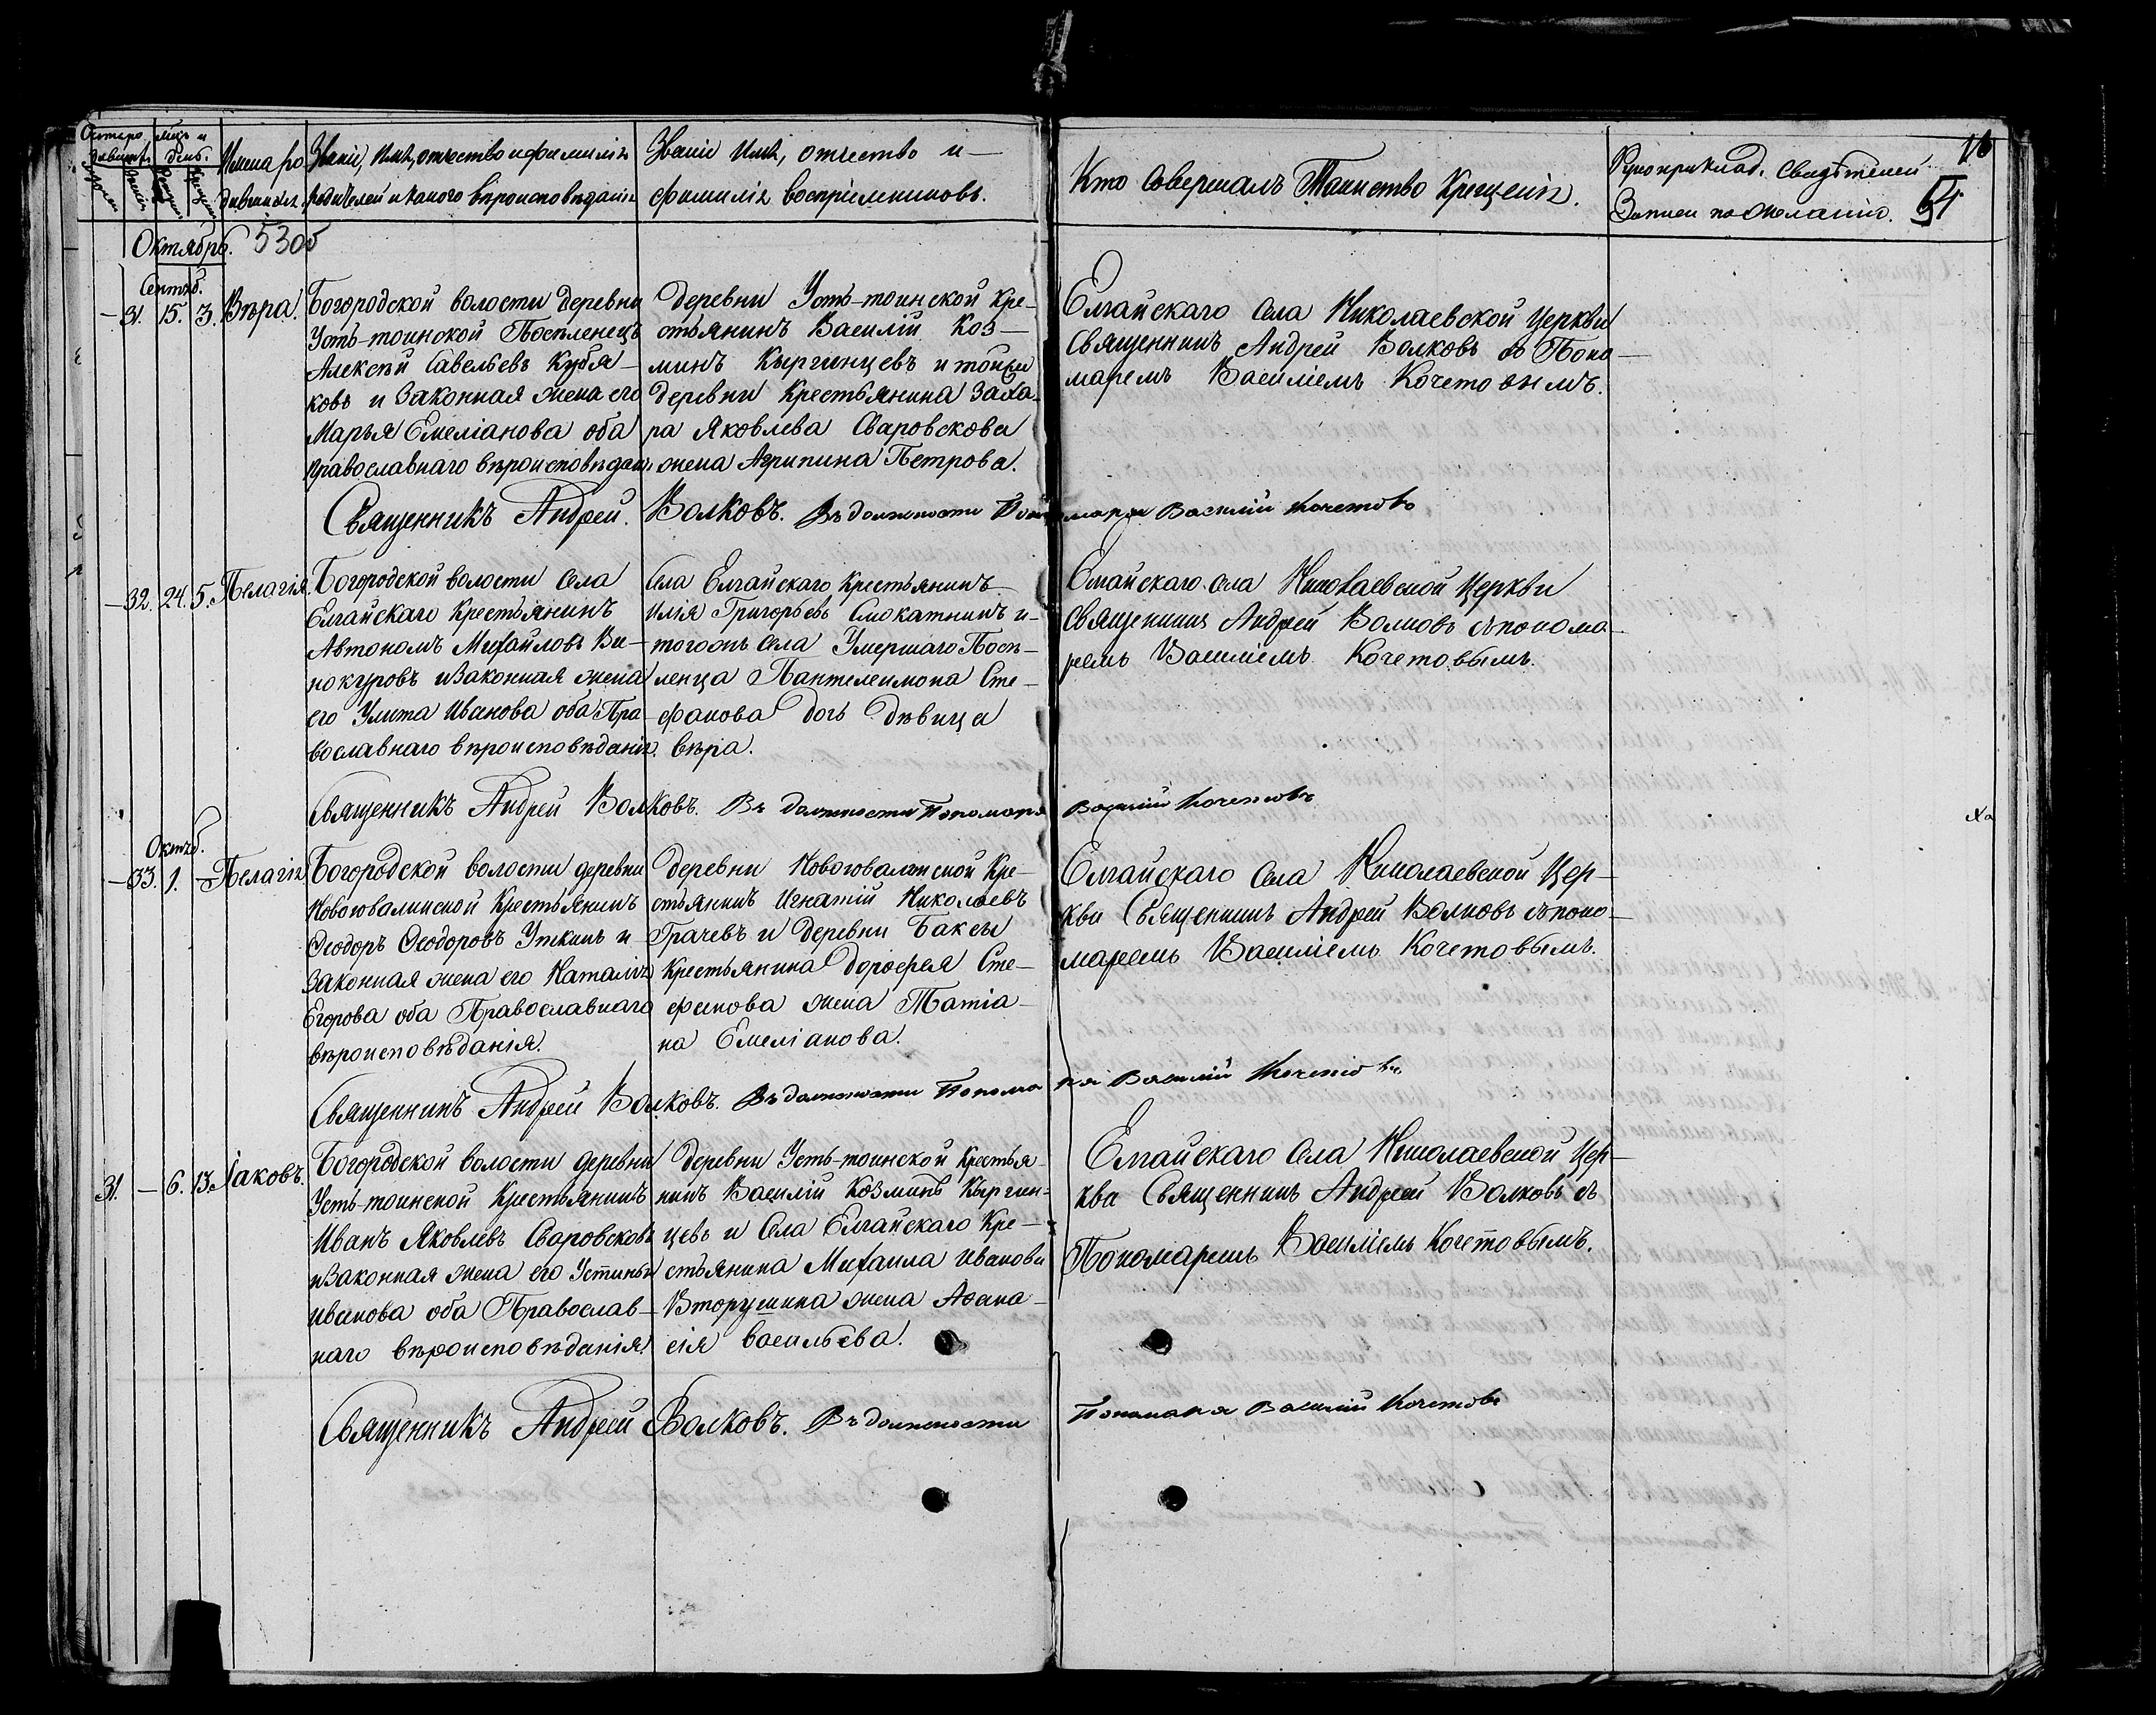 Мѣсяцъ и день.
Имена родившихся.
Званіе, имя, отчество и фамилія
родителей и какого вѣроисповѣданія
Званіе имя, отчество и
фамилія воспріемниковъ.
Кто совершалъ Таинство Крещенія.
Рукоприклад. Свидѣтелей
Записи по желанію.
54
Октябрь. 5305
Сентяб.
31. 15. 3. Вѣра.
Богородской волости деревни
Усть-тоинской Поселенецъ
Алексѣй Савельевъ Кубя-
ковъ и Законная жена его
Марья Емеліанова оба
Православнаго вѣроисповѣдан.
деревни Усть-тоинской Кре-
стьянинъ Василій Коз-
минъ Кыргинцевъ и тойже
деревни Крестьянина Заха-
ра Яковлева Сваровскова
жена Агрипина Петрова.
Елгайскаго села Николаевской Церкви
Священникъ Андрей Волковъ съ Поно-
маремъ Василіемъ Кочетовымъ.
Священникъ Андрей Волковъ. Въ должности Пономаря Василий Кочетовъ
32. 24. 5. Пелагія.
Богородской волости села
Елгайскаго Крестьянинъ
Автономъ Михайловъ Ви-
нокуровъ и Законная жена
его Улита Иванова оба Пра-
вославнаго вѣроисповѣданія.
Села Елгайскаго Крестьянинъ
Илія Григорьевъ Смокатнинъ и
тогожъ села Умершаго Посе-
ленца Пантелеимона Сте-
фанова дочь дѣвица
Вѣра.
Елгайскаго села Николаевской Церкви
Священникъ Андрей Волковъ съ понома-
ремъ Василіемъ Кочетовымъ.
Священникъ Андрей Волковъ. Въ должности Пономаря Василий Кочетовъ
Октяб.
33. 1. Пелагія
Богородской волости деревни
Новоювалинской Крестьянинъ
Ѳеодоръ Ѳеодоровъ Уткинъ и
Законная жена его Наталія
Егорова оба Православнаго
вѣроисповѣданія.
деревни Новоювалинской Кре-
стьянинъ Игнатій Николаевъ
Грачевъ и деревни Баксы
Крестьянина дорофея Сте-
фанова жена Татіа-
на Емеліанова.
Елгайскаго села Николаевской Цер-
кви Священникъ Андрей Волковъ съ поно-
маремъ Василіемъ Кочетовымъ.
Священникъ Андрей Волковъ. Въ должности Пономаря Василий Кочетовъ
31. 6. 13. Іаковъ.
Богородской волости деревни
Усть-тоинской Крестьянинъ
Иванъ Яковлевъ Сваровсковъ
и Законная жена его Устинья
Иванова оба Православ-
наго вѣроисповѣданія.
деревни Усть-тоинской Крестья-
нинъ Василій Козминъ Кыргин-
цевъ и села Елгайскаго Кре-
стьянина Михаила Иванова
Вторушина жена Аѳана-
сія Васильева.
Елгайскаго села Николаевской Цер-
кви Священникъ Андрей Волковъ съ
Пономаремъ Василіемъ Кочетовымъ.
Священникъ Андрей Волковъ. Въ должности Пономаря Василий Кочетовъ